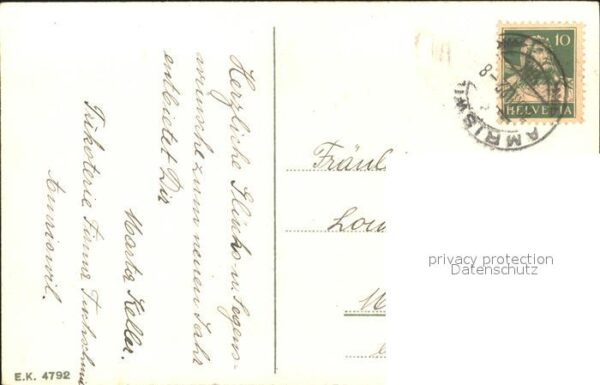 Herzliche Glücks- u. Segens-
wünsche zum neuen Jahr
entbietet Dir
Marta Keller.
Trikoterie Firma
Amriswil.
E.K. 4792
10
HELVETIA
AMRISWIL
Fräul
Lou
privacy protection
Datenschutz